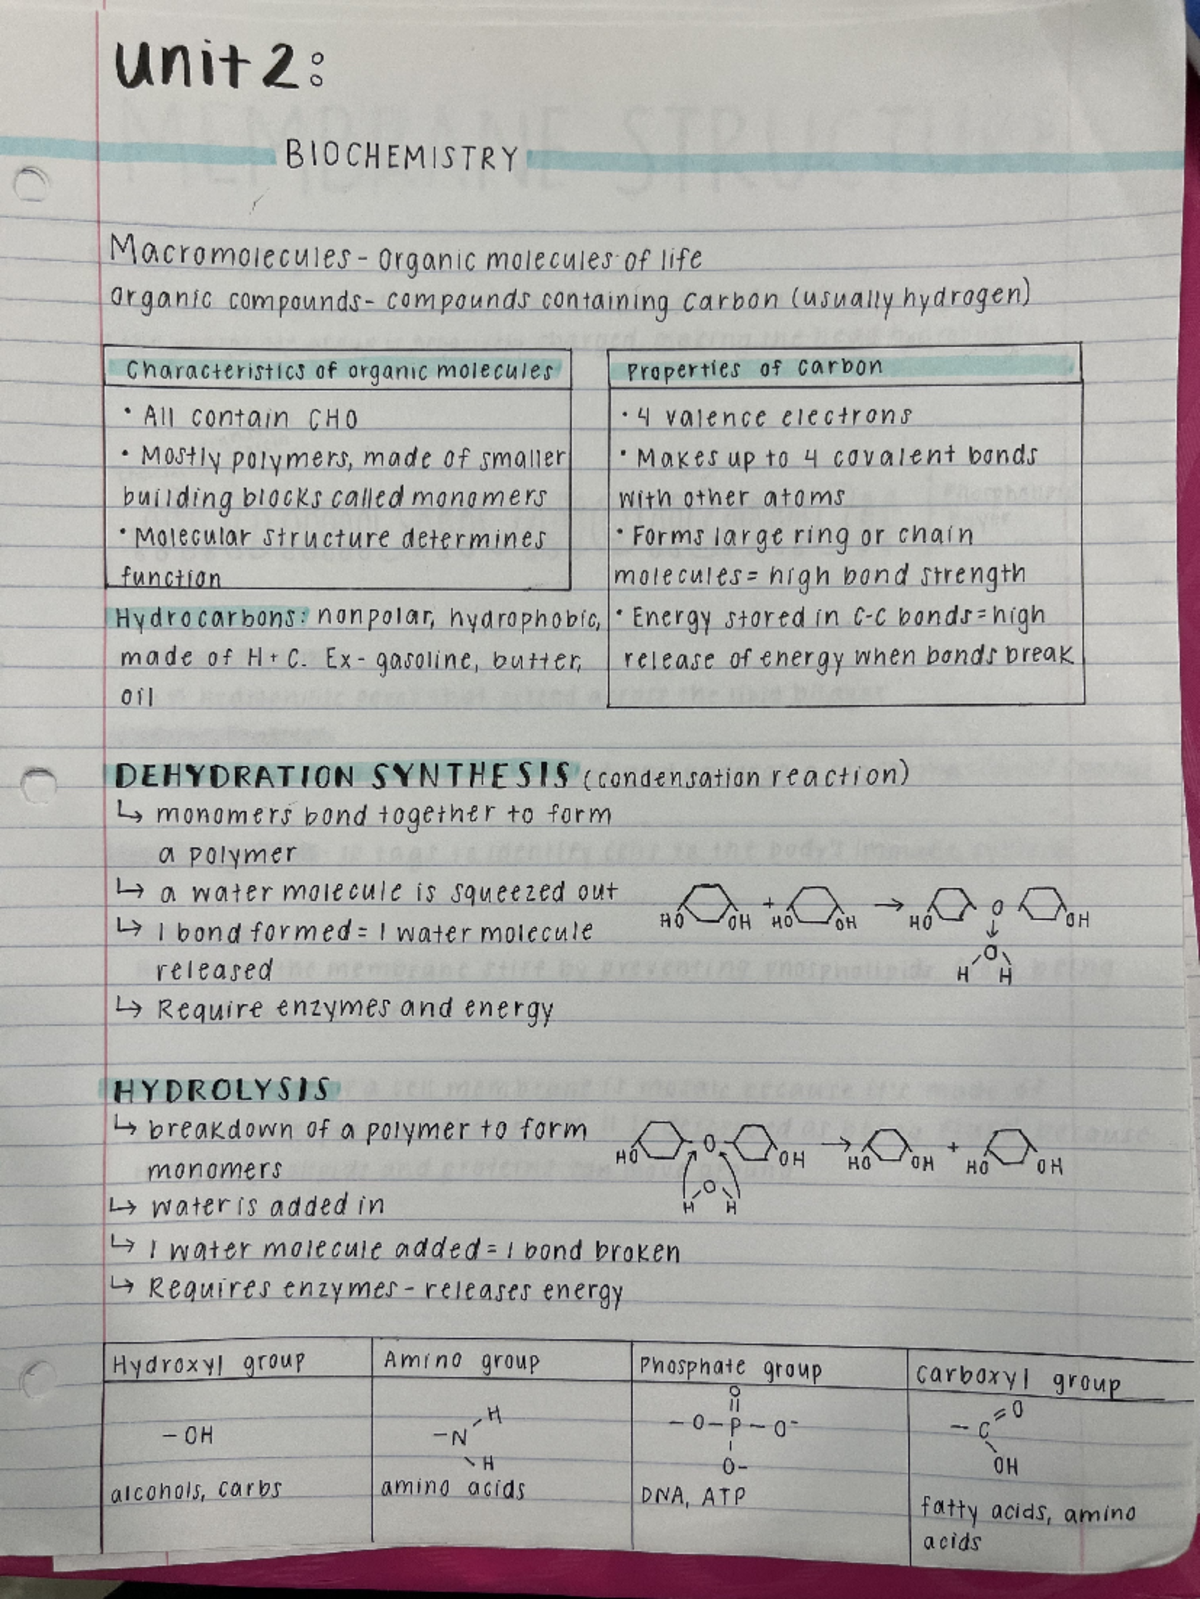 unit 2:
BIOCHEMISTRY
Macromolecules - organic molecules of life
organic compounds - compounds containing carbon (usually hydrogen)
Characteristics of organic molecules
• All contain CHO
• Mostly polymers, made of smaller
building blocks called monomers
• Molecular structure determines
function
Properties of carbon
• 4 valence electrons
• Makes up to 4 covalent bonds
with other atoms
• Forms large ring or chain
molecules = high bond strength
• Energy stored in C-C bonds = high
release of energy when bonds break
Hydrocarbons: nonpolar, hydrophobic,
made of H + C. Ex - gasoline, butter,
oil
DEHYDRATION SYNTHESIS (condensation reaction)
↳ monomers bond together to form
a polymer
↳ a water molecule is squeezed out
↳ 1 bond formed = 1 water molecule
released
↳ Require enzymes and energy
HO OH + HO OH → HO O OH
O
H H
HYDROLYSIS
↳ breakdown of a polymer to form
monomers
↳ water is added in
↳ 1 water molecule added = 1 bond broken
↳ Requires enzymes - releases energy
HO O OH → HO OH + HO OH
O
H H
Hydroxyl group
- OH
alcohols, carbs
Amino group
H
- N
H
amino acids
Phosphate group
O
- O - P - O-
O-
DNA, ATP
carboxyl group
O
- C
OH
fatty acids, amino
acids